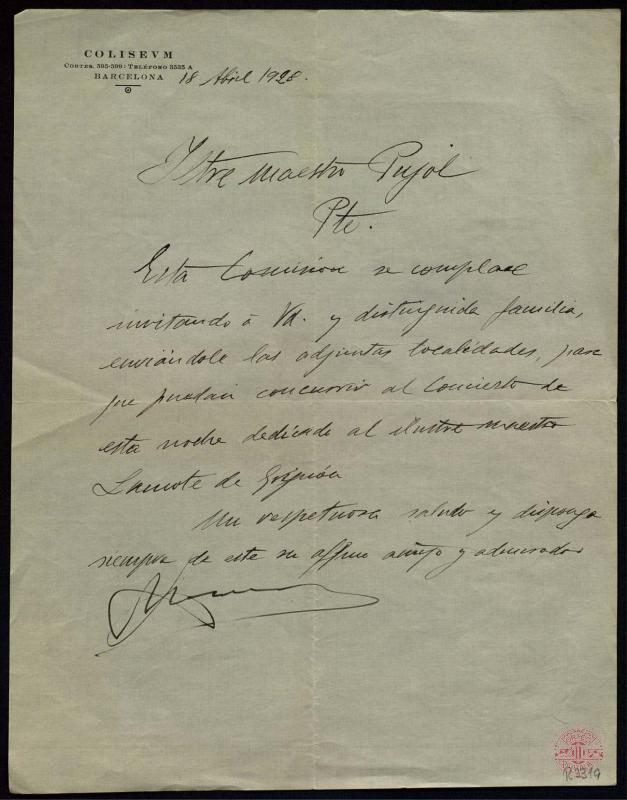 COLISEVM
CORTES, 595-599: TELÉFONO 3535 A
BARCELONA
18 Abril 1928.
Iltre maestro Pujol
Pte.
Esta Comisión se complace
invitando á Vd. y distinguida familia,
enviándole las adjuntas localidades, para
que puedan concurrir al Concierto de
esta noche dedicado al ilustre maestro
Lamote de Grignón
Un respetuoso saludo y disponga
siempre de este su affmo amigo y admirador
R 2319